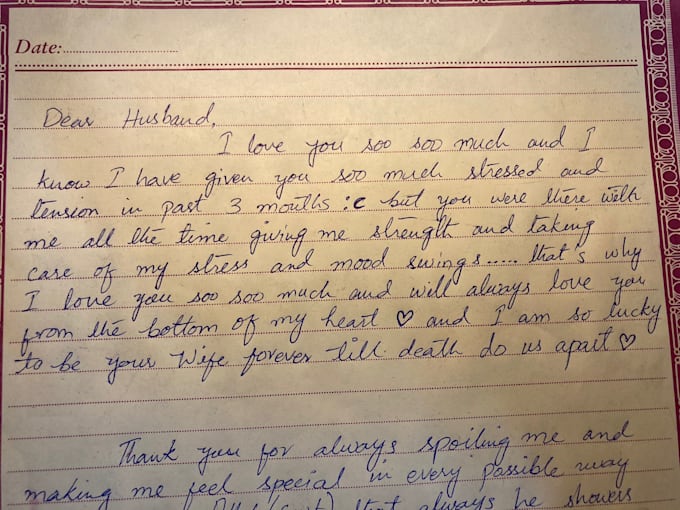 Date:
Dear Husband,
I love you soo soo much and I
know I have given you soo much stressed and
tension in past 3 months :c but you were there with
me all the time giving me strength and taking
care of my stress and mood swings..... that's why
I love you soo soo much and will always love you
from the bottom of my heart ♡ and I am so lucky
to be your Wife forever till death do us apart ♡
Thank you for always spoiling me and
making me feel special in every possible way
that always he showers